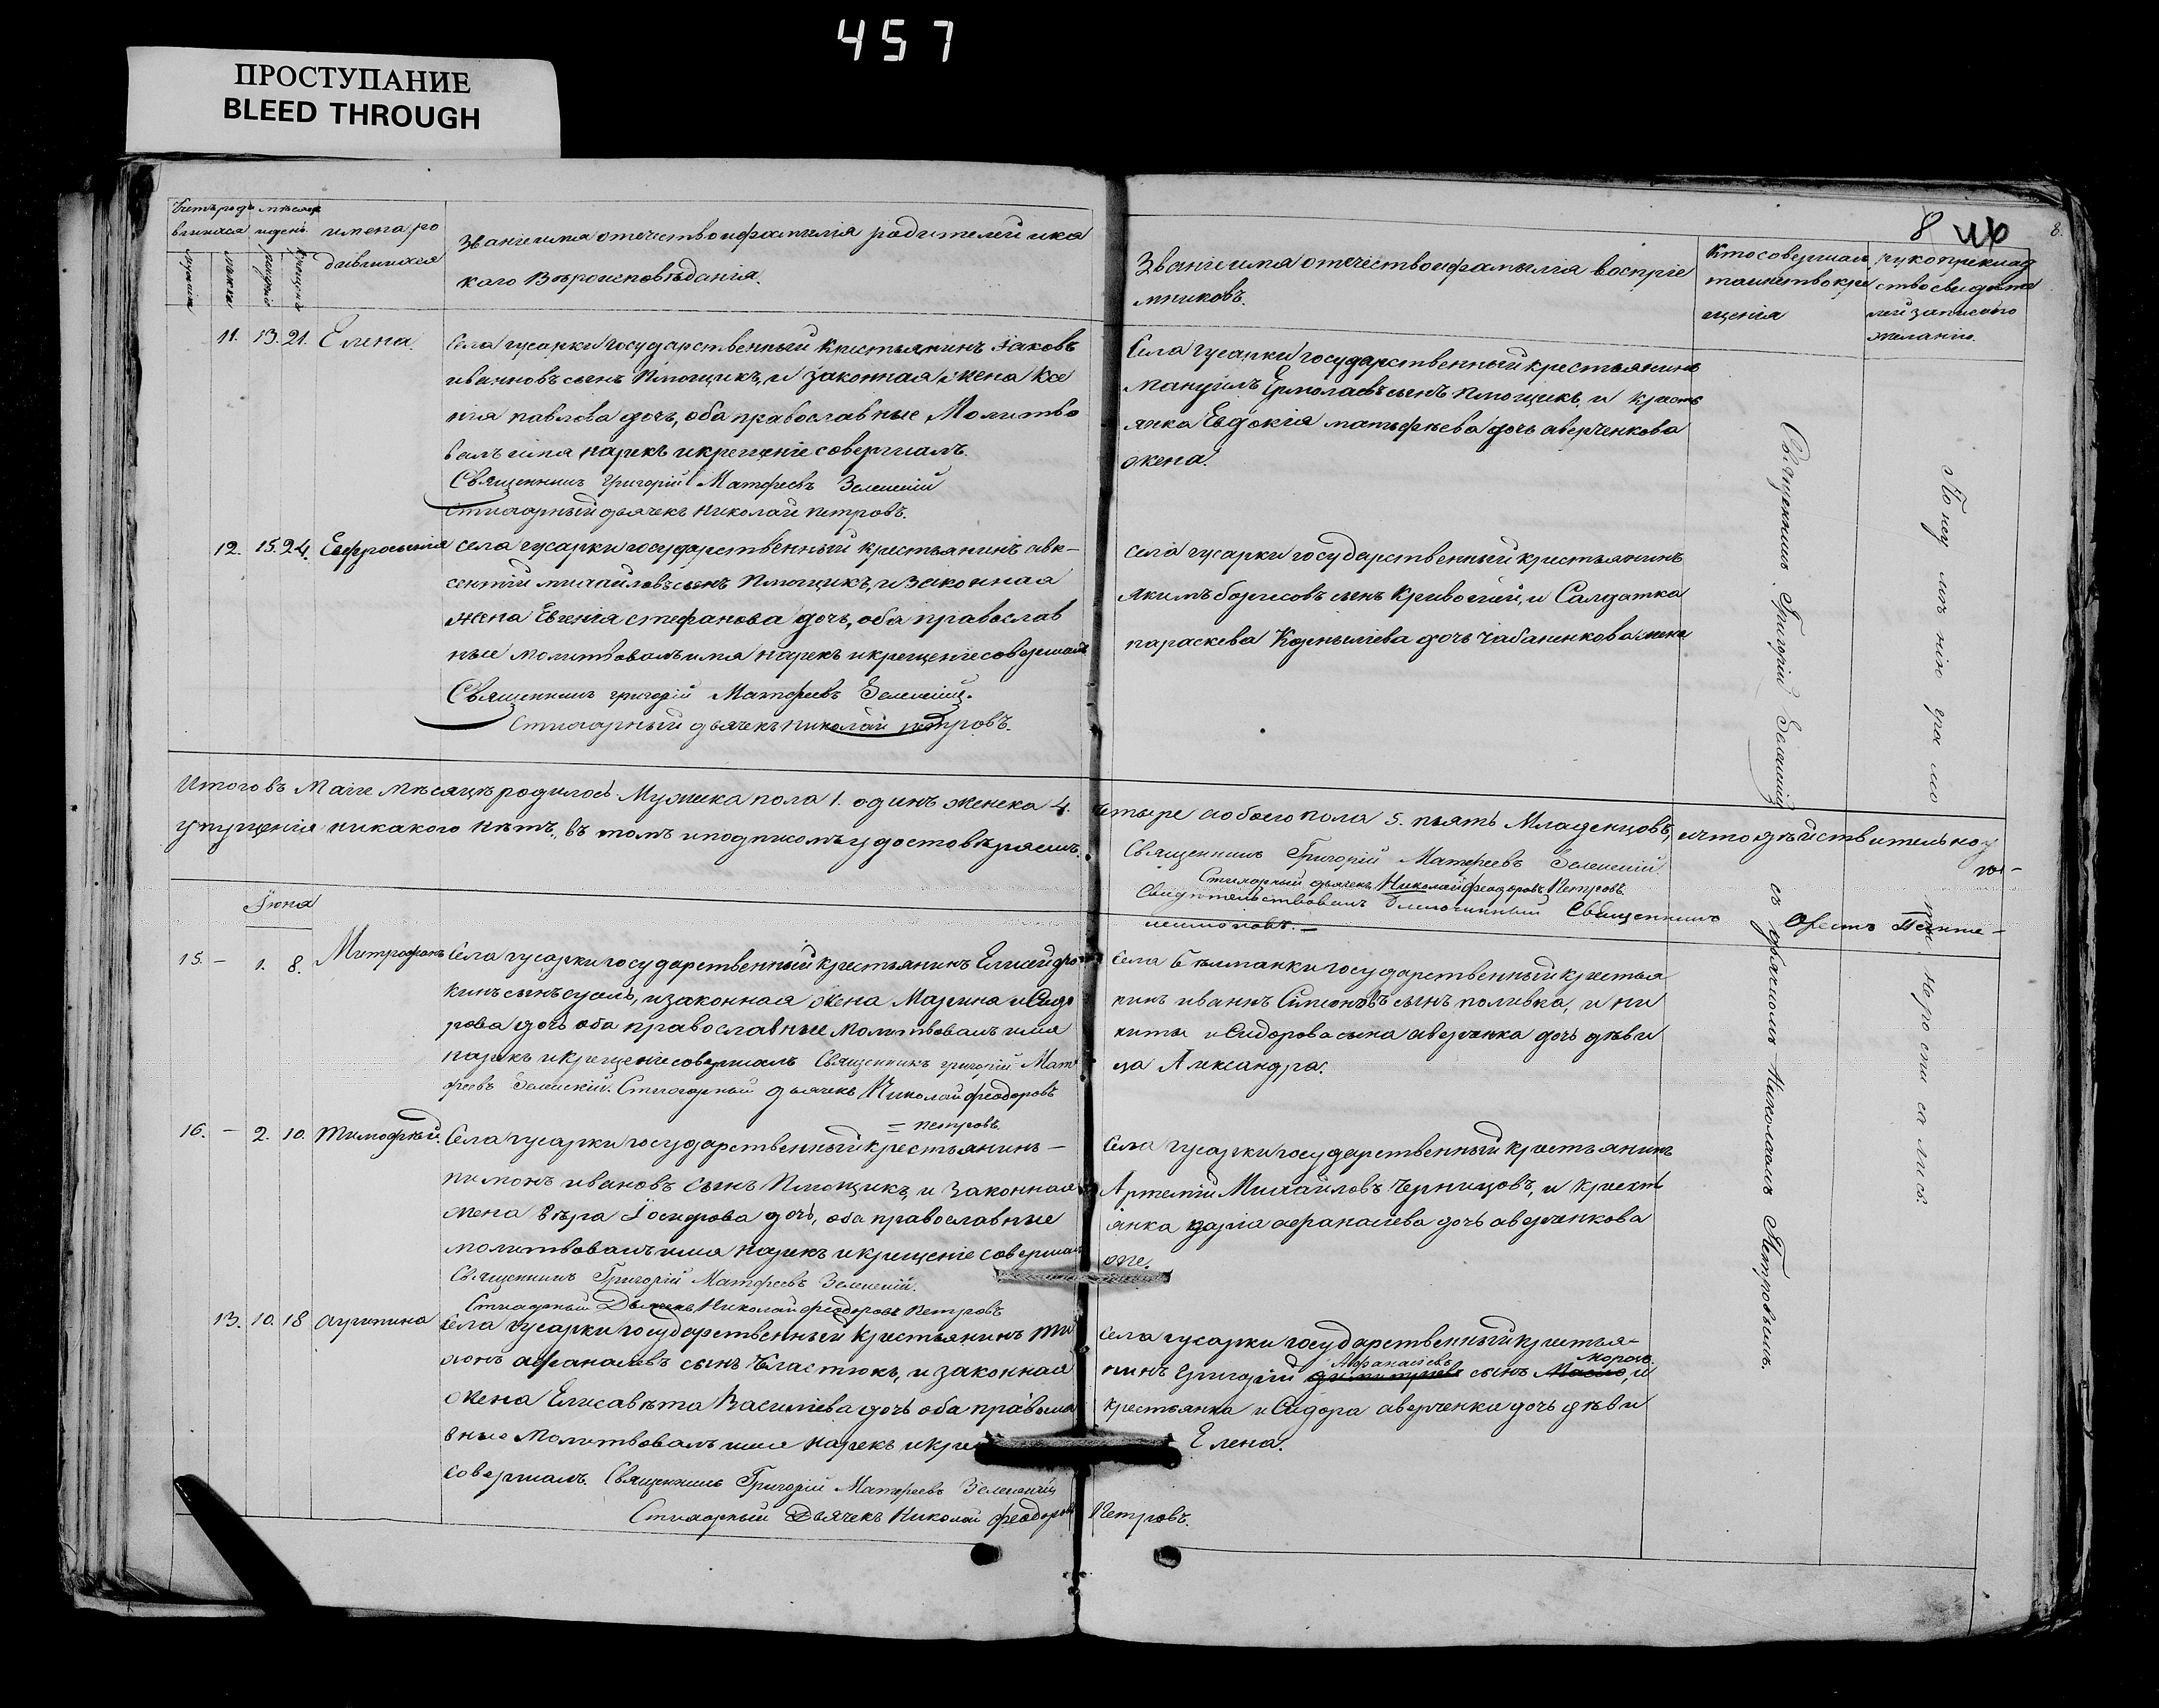 457
ПРОСТУПАНИЕ
BLEED THROUGH
8 46 8.
Счетъ родившихся
мѣсяцъ и день
имена ро
дившихся
Званіе имя отечество и фамилія родителей и ка
каго Вѣроисповѣданія.
Званіе имя отечество и фамилія воспріе
мниковъ.
Кто совершал
таинство кре
щенія
рукоприклад
ство свидѣте
лей записи по
желанію.
11. 13. 21. Елена.
Села гусарки государственный крестьянинъ Іаковъ
ивановъ сынъ Плющикъ, и законная жена Ксе
нія павлова дочь, оба православные Молитво
валъ имя нарекъ и крещеніе совершалъ.
Священникъ Григорій Матфеевъ Зеленскій
Стихарный дьячекъ Николай петровъ.
Села гусарки государственный крестьянинъ
мануилъ Ермолаевъ сынъ Плющикъ, и кресть
янка Евдокія матьфѣева дочь аверченкова
жена.
12. 15. 24. Евфросинія
села гусарки государственный крестьянинъ авк-
сентій михайловъ сынъ Плющикъ, и законная
жена Евгенія стефанова дочь, оба православ
ные молитвовалъ имя нарекъ и крещеніе совершалъ
Священникъ григорій Матфеевъ Зеленскій.
Стихарный дьячекъ николай петровъ.
села гусарки государственный крестьянинъ
якимъ борисовъ сынъ Кривошей, и Салдатка
параскева Корнылiева дочь чабаненкова жена
Итого въ Маіе мѣсяцѣ родилось Мужска пола 1. одинъ женска 4. четыре а обоего пола 5. пять Младенцовъ, и что дѣйствительно у
упущенія никакого нѣтъ, въ томъ и подписомъ удостовѣряемъ.
Священникъ Григорій Матфеевъ Зеленскій
Стихарный дьячекъ Николай феодоровъ Петровъ
Свидѣтельствовалъ Благочинный Священникъ Орестъ Панте-
леимоновъ.
Іюня
15. - 1. 8. Митрофанъ
Села гусарки государственный крестьянинъ Елисей фо
кинъ сынъ суслъ, и законная жена Марина исидо
рова дочь оба православные молитвовалъ имя
нарекъ и крещеніе совершалъ Священникъ григорій Мат
феевъ Зеленскій. Стихарный дьячекъ Николай феодоровъ
= петровъ.
Села Бѣлманки государственный крестья
нинъ иванъ Симеоновъ сынъ поливка, и ни
киты исидорова сына аверченка дочь дѣви
ца Александра.
16. - 2. 10. Тимофѣй.
Села гусарки государственный крестьянинъ -
пимонъ ивановъ сынъ Плющикъ, и законная
жена вѣра Іосифова дочь, оба православные
молитвовалъ имя нарекъ и крещеніе совершалъ
Священникъ Григорій Матфеевъ Зеленскій.
Стихарный Дьячекъ Николай феодоровъ Петровъ
Села гусарки государственный крестьянинъ
Артемій Михайловъ Чернцовъ, и крест
янка дарiа афанасіева дочь аверченкова
же.
13. 10. 18 агрипина
села гусарки государственный крестьянинъ ти
монъ афанасіевъ сынъ Власюкъ, и законная
жена Елисавѣта Василіева дочь оба правосла
вные Молитвовалъ имя нарекъ и кре
совершалъ. Священникъ Григорій Матфеевъ Зеленскій
Стихарный Дьячекъ Николай феодоровъ Петровъ.
села гусарки государственный крестья-
нинъ Григорій Афанасіевъ сынъ Морозъ, и
крестьянка исидора аверченка дочь дѣви
Елена.
Священникъ Григорій Зеленскій съ дьячкомъ Николаемъ Петровымъ.
По неумѣнію грамотѣ неросписались